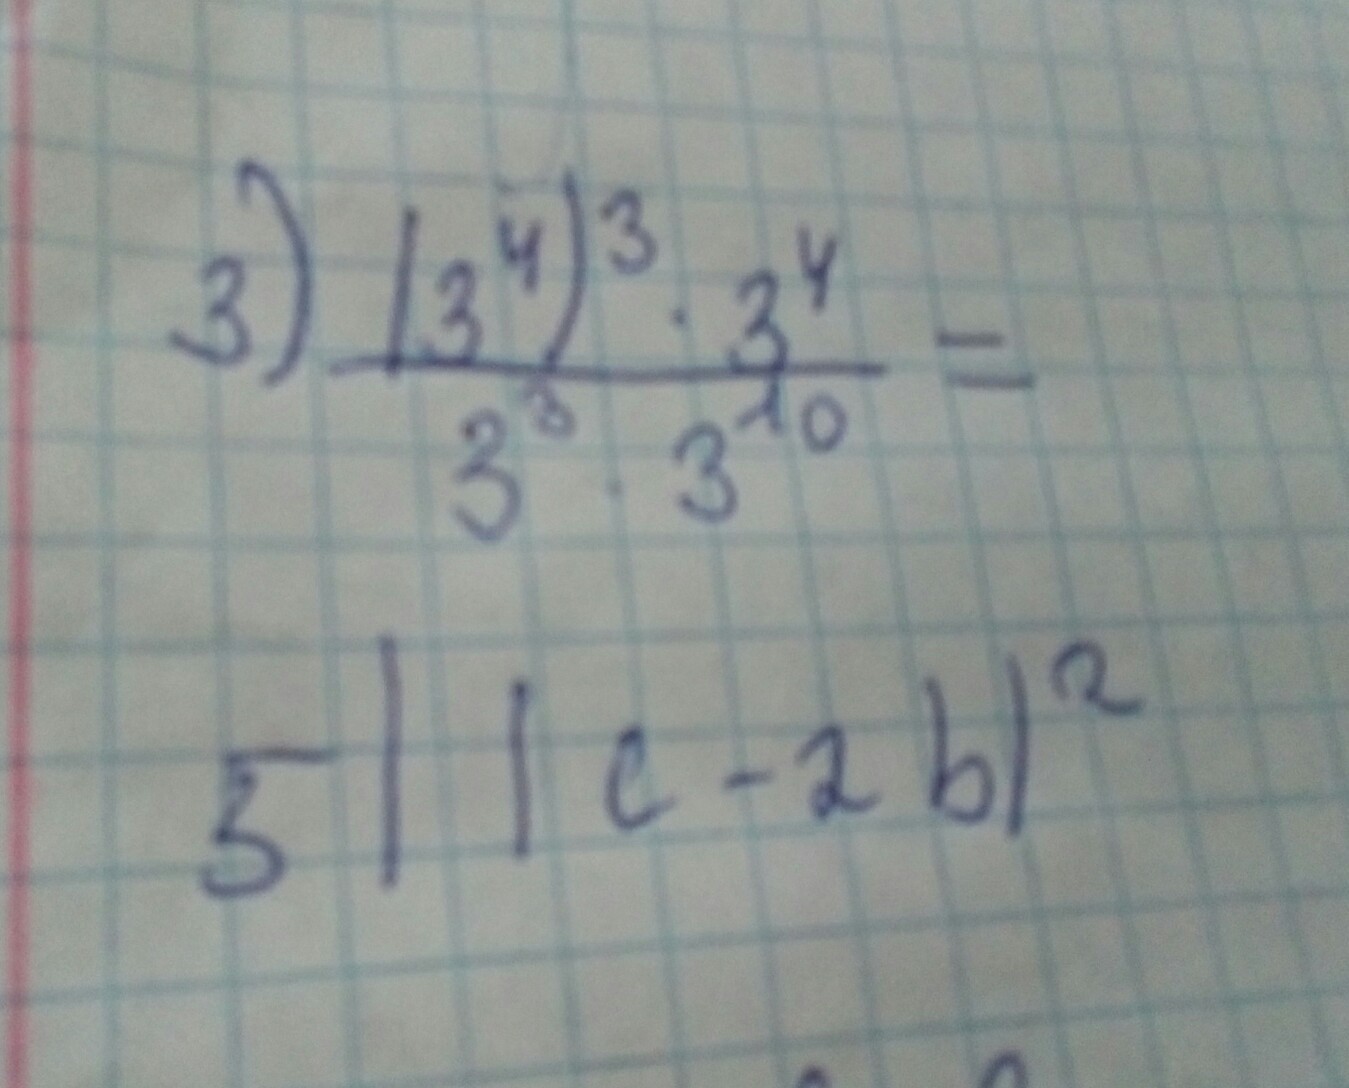 3) (3⁴)³ · 3⁴ =
3³ · 3¹⁰
5) (c - 2b)²